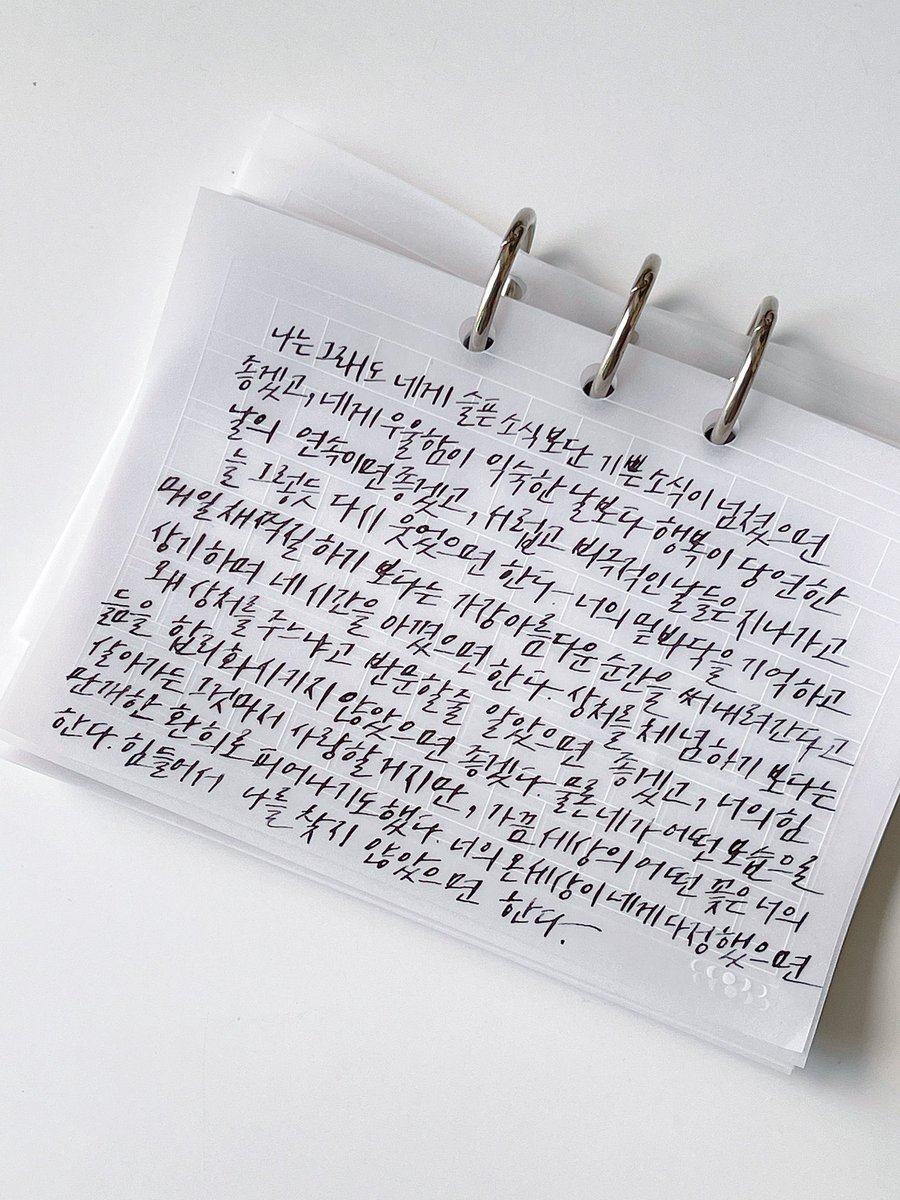 나는 그래도 네게 슬픈 소식보단 기쁜 소식이 넘쳤으면
좋겠고, 네게 우울함이 익숙한 날보다 행복이 당연한
날의 연속이면 좋겠고, 서럽고 비극적인 날들은 지나가고
늘 그렇듯 다시 웃었으면 한다. 너의 밑바닥을 기억하고
매일 새벽 실하기 보다는 가장 아름다운 순간을 써내려간다고
상기하며 네 시간을 아꼈으면 한다. 상처를 체념하기 보다는
왜 상처를 주느냐고 반문할줄 알았으면 좋겠고, 너의 힘
듦을 합리화시키지 않았으면 좋겠다. 물론 네가 어떤 모습으로
살아가든 그것마저 사랑할 거지만, 가끔 세상의 어떤 꽃은 너의
만개한 환희로 피어나기도 했다. 너의 온 세상이 네게 다정했으면
한다. 힘들어서 나를 찾지 않았으면 한다.